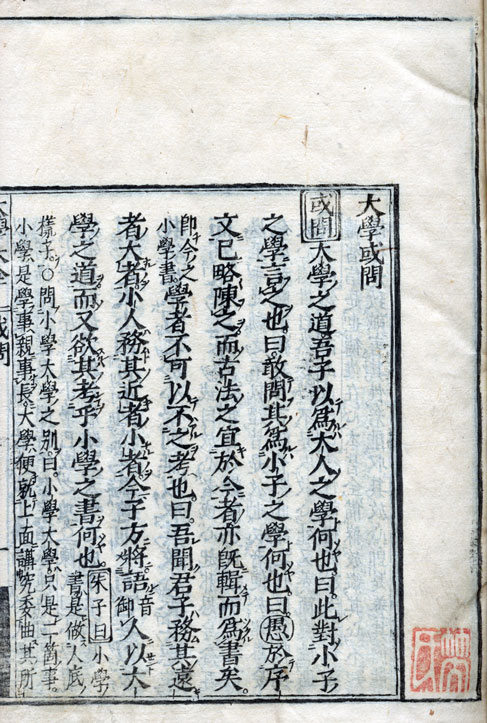 大學或問
或問大學之道吾子以爲大人之學何也曰此對小子
之學言之也曰敢問其爲小子之學何也曰愚於序
文已略陳之而古法之宜於今者亦既輯而爲書矣
即今之小學書學者不可以不之考也曰吾聞君子務其遠
者大者小人務其近者小者今子方將語音御人以大
學之道而又欲其考乎小學之書何也朱子曰小學書是做人底
樣子○問小學大學之別曰小學大學只是一箇事
小學是學事親事長大學便就上面講究委曲其所
或問